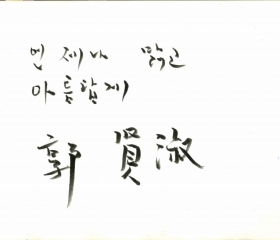 언제나 맑고
아름답게
郭賢淑